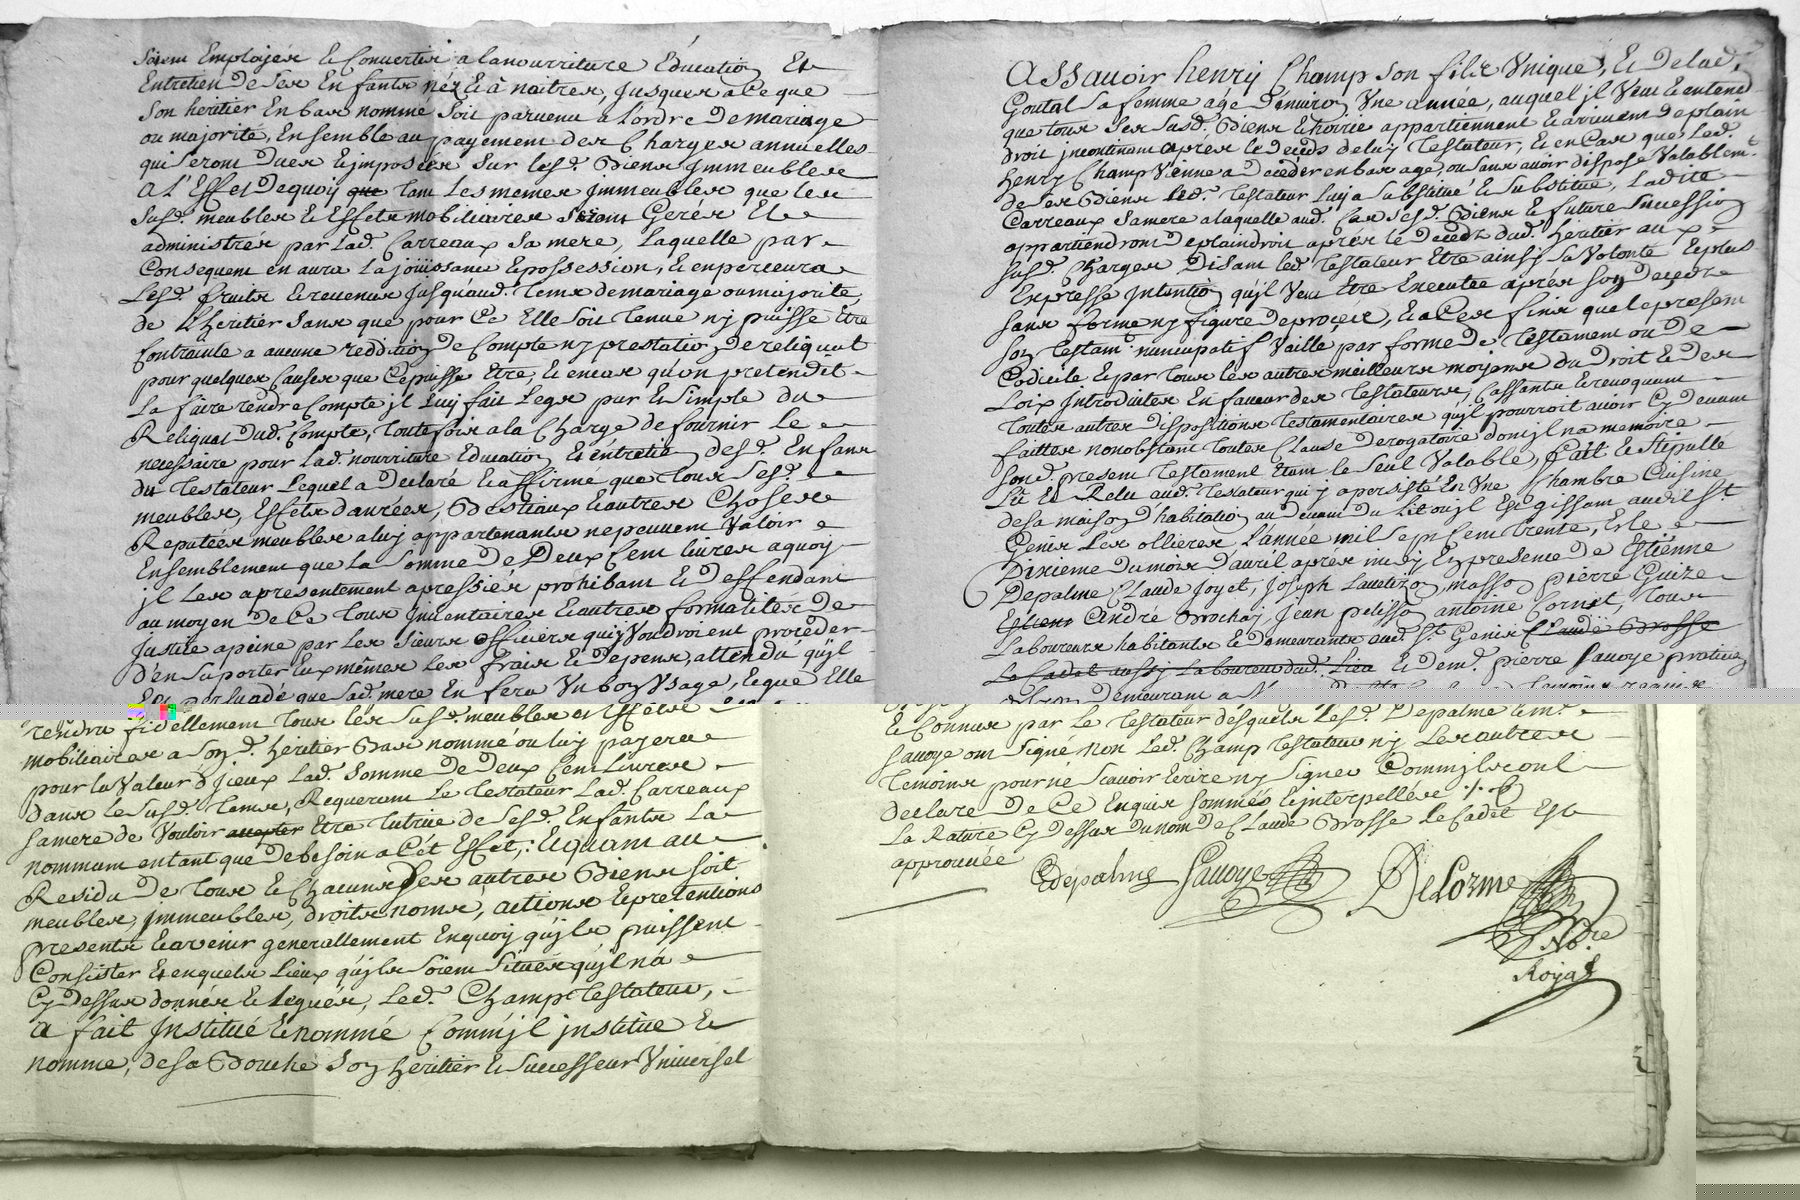 soient Employés & Convertis a la nourriture Education Et
Entretien de ses Enfants néz & à naitres, jusques a Ce que
son heritier En bas nommé soit parvenu a l'ordre de mariage
ou majorité, Ensemble au payement des Charges annuelles
qui seront dues & imposées sur lesd. Biens jmmeubles
a l'Effet dequoy que tant les memes jmmeubles que les
susd. meubles & Effets mobiliaires soient Gerés Et
administrés par lad. Carreaux sa mere, Laquelle par
Consequent en aura la joüissance & possession, & en percevra
Lesd. fruits & revenus jusqu'aud. tems de mariage ou majorité,
de l'heritier sans que pour Ce Elle soit tenue ny puisse Etre
Contrainte a aucune reddition de Compte ny prestation de reliquat
pour quelques Causes que Ce puisse Etre, & en cas qu'on pretendit
La faire rendre Compte jl luy fait Legs pur & simple du
Reliquat dud. Compte, toutefois a la Charge de fournir Le
necessaire pour lad. nourriture Education Et entretien desd. Enfans
du Testateur Lequel a Declaré & affirmé que tous sesd.
meubles, Effets danrées, Bestiaux & autres Choses
Reputées meubles a luy appartenants ne peuvent Valoir
Ensemblement que la somme de Deux Cent livres a quoy
jl les a presentement apressiés prohibant & deffendant
au moyen de Ce tous jnventaires & autres formalités de
justice a peine par les sieurs officiers qui y Voudroient proceder
d'en suporter Eux mêmes les frais & depens, attendu qu'jl
Est persuadé que sad. mere En fera Un bon Usage, & que Elle
rendra fidellement tous les susd. meubles et Effets
mobiliaires a sond. heritier Bas nommé ou luy payera
pour la Valeur d'jceux Lad. somme de deux Cent Livres
dans le susd. tems, Requerant Le Testateur Lad. Carreaux
sa mere de Vouloir accepter Etre tutrice de sesd. Enfants La
nommant entant que de besoin a Cét Effet, Et quant au
Residu de tous & Chacuns ses autres Biens soit
meubles, jmmeubles, droits noms, actions & pretentions
presents & avenir generallement En quoy qu'jls puissent
Consister & en quels Lieux qu'jls soient situés qu'jl n'a
Cy dessus donnés & legués, Led. Champ Testateur,
a fait jnstitué & nommé Comm'jl jnstitüe &
nomme, de sa Bouche Son heritier & successeur Universel
assavoir henry Champ son fils Unique, & de lad.
Goutal sa femme agé d'environ Une année, auquel jl Veut & entend
que tous ses susd. Biens & hoirie appartiennent & arrivent de plain
droit jncontinant apres le Deceds de luy Testateur, & en Cas que led.
henry Champ Vienne a Deceder en bas age, ou sans avoir disposé Valablemt.
de ses Biens Led. Testateur Luy a substitué & substitue, Ladite
Carreaux sa mere a laquelle aud. Cas sesd. Biens & future succession
appartiendront de plain droit aprés le deceds dud. heritier aux
susd. Charges Disant led. Testateur Etre ainsy sa Volonté & plus
Expresse jntention qu'jl Veut Etre Executée aprés son deceds
sans forme ny figure de procés, & a Ces fins que le present
son Testamt. nuncupatif Vaille par forme de Testament ou de
Codicile & par tous les autres meilleurs moyens du Droit & des
Loix jntroduites En faveur des Testateurs, Cassants & revoquant
toutes autres dispositions testamentaires qu'jl pourroit avoir Cy devant
faittes nonobstant toutes Clause derogatoire dont jl n'a memoire
sond. present testament Etant le seul Valable, fait & stipulle
Lit & Relu aud. testateur qui y a persisté En Une Chambre Cuisine
de sa maison d'habitation au devant du Lit ou jl Est gissant aud. St.
Genis Les ollieres L'année mil sept Cent trente, & le
Dixieme du mois d'avril aprés midy En presence de Estienne
Depalme Claude joyet, Joseph Lauetizon masson pierre Guize
Estienne André Brochay, Jean pelisson antoine Cornet, tous
Laboureurs habitants & demeurants aud. St. Genis Claude Brosse
Le Cadet aussy Laboureur dud. Lieu & de me. pierre Sauoye praticien
& Connus par Le testateur desquels Lesd. Depalme & me.
Sauoye ont signé non Led. Champ testateur ny Les autres
temoins pour ne scavoir Ecrire ny signer Comm'jls ont
declaré de Ce Enquis sommés & interpellés
La Rature Cy dessus du nom de Claude Brosse le Cadet Est
approuvée
Edepalme Sauoye DeLorme
No.re
Royal